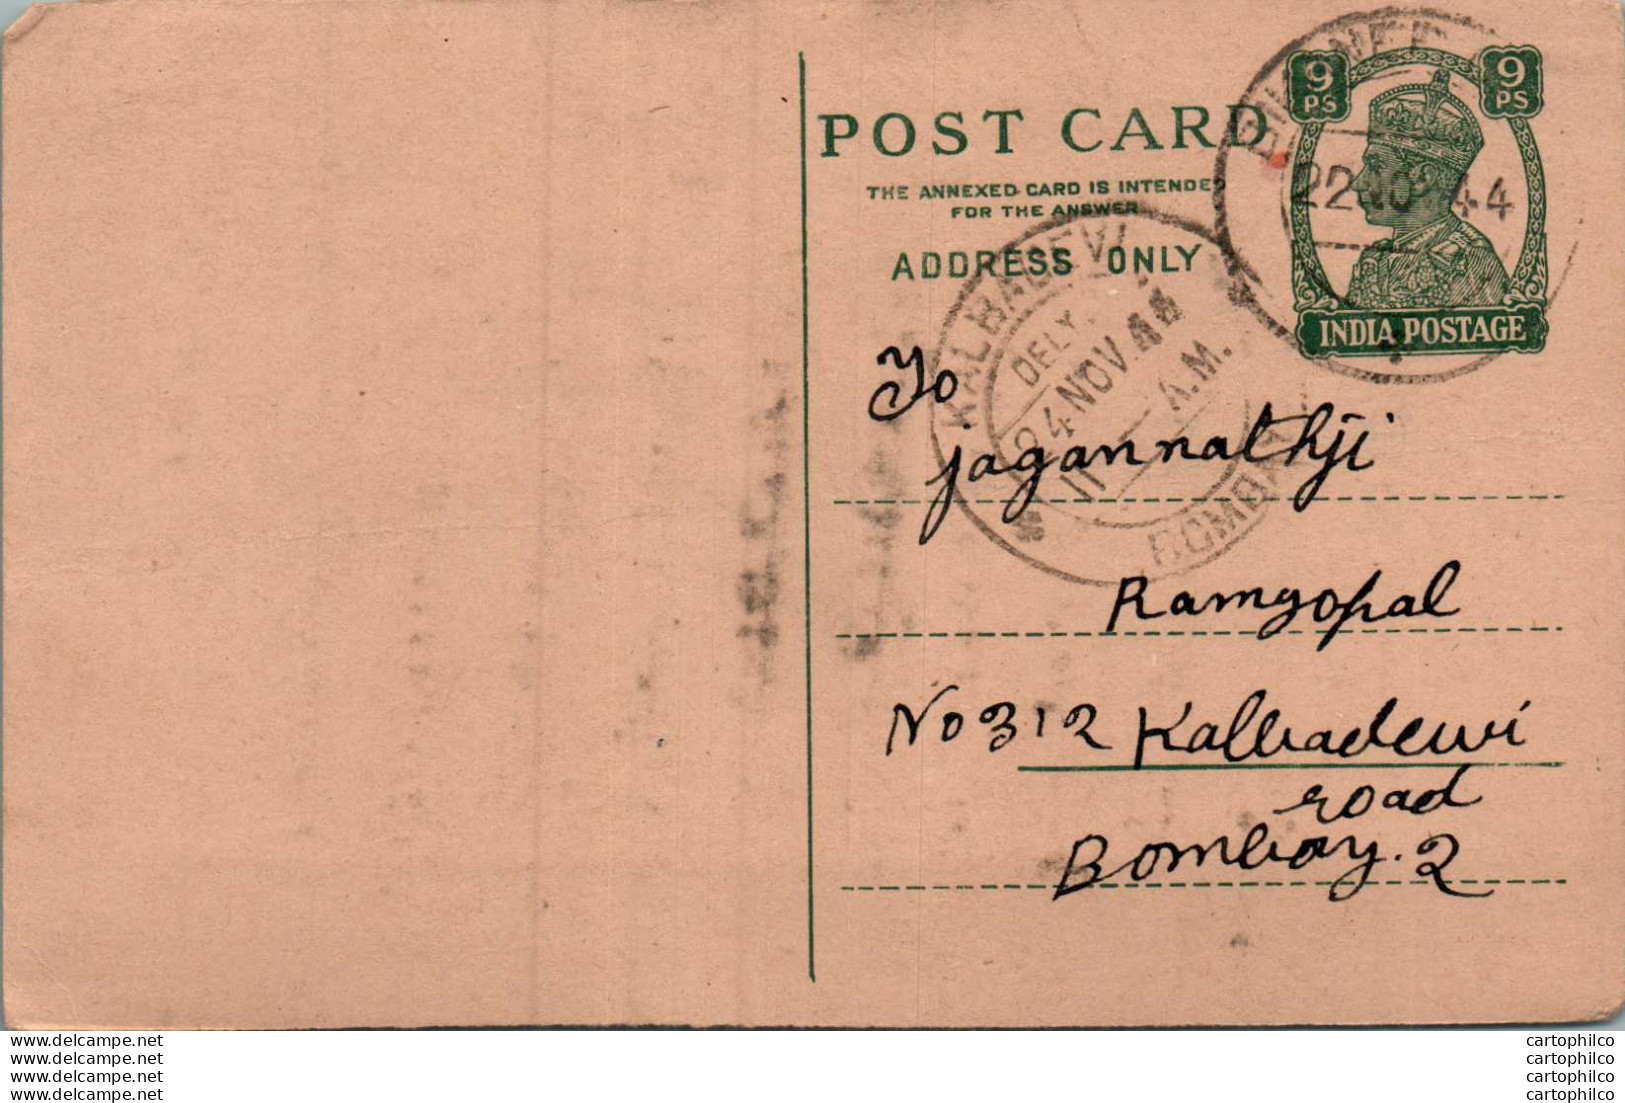 9 PS 9 PS
POST CARD
THE ANNEXED CARD IS INTENDED
FOR THE ANSWER
ADDRESS ONLY
INDIA POSTAGE
22 NOV 44
KALBADEVI
DELY.
24 NOV. 44
11 A.M.
BOMBAY
To
Jagannathji
Ramgopal
No 312 Kalbadewi
road
Bombay. 2
www.delcampe.net
www.delcampe.net
www.delcampe.net
www.delcampe.net
cartophilco
cartophilco
cartophilco
cartophilco